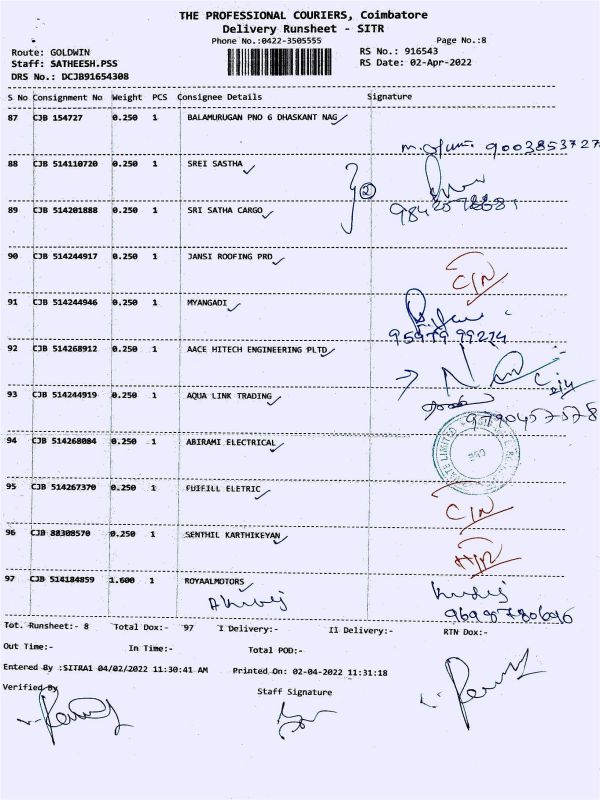 THE PROFESSIONAL COURIERS, Coimbatore
Delivery Runsheet - SITR
Phone No.:0422-3505555 Page No.:8
Route: GOLDWIN RS No.: 916543
Staff: SATHEESH.PSS RS Date: 02-Apr-2022
DRS No.: DCJB91654308
S No Consignment No Weight PCS Consignee Details Signature
87 CJB 154727 0.250 1 BALAMURUGAN PNO 6 DHASKANT NAG
9003853727
88 CJB 514110720 0.250 1 SREI SASTHA
2
89 CJB 514201888 0.250 1 SRI SATHA CARGO
90 CJB 514244917 0.250 1 JANSI ROOFING PRD
C/N
91 CJB 514244946 0.250 1 MYANGADI
95979 99224
92 CJB 514268912 0.250 1 AACE HITECH ENGINEERING PLTD
93 CJB 514244919 0.250 1 AQUA LINK TRADING
9790457578
94 CJB 514268084 0.250 1 ABIRAMI ELECTRICAL
CBE
95 CJB 514267370 0.250 1 FUIFILL ELETRIC
C/N
96 CJB 88308570 0.250 1 SENTHIL KARTHIKEYAN
97 CJB 514184859 1.600 1 ROYAALMOTORS
Tot. Runsheet:- 8 Total Dox:- 97 I Delivery:- II Delivery:- RTN Dox:-
Out Time:- In Time:- Total POD:-
Entered By :SITRA1 04/02/2022 11:30:41 AM Printed On: 02-04-2022 11:31:18
Verified By Staff Signature